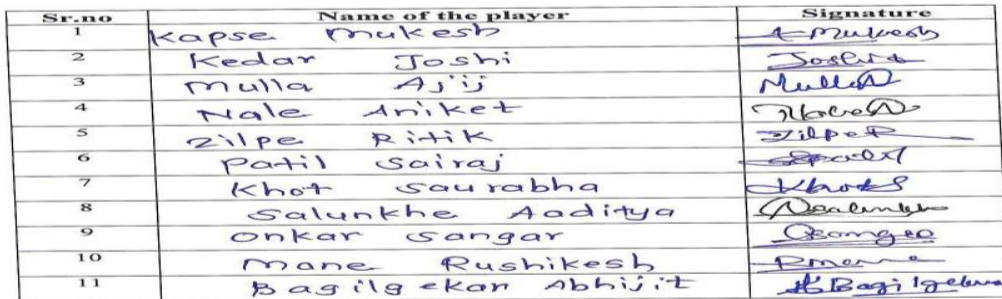 Sr.no Name of the player Signature
1 Kapse Mukesh Mukesh
2 Kedar Joshi Joshi
3 Mulla Ajij Mulla
4 Nale Aniket
5 Zilpe Ritik Zilpe R
6 Patil Sairaj
7 Khot Saurabha Khot S
8 Salunkhe Aaditya
9 Onkar Sangar
10 Mane Rushikesh
11 Bagilgekar Abhijit